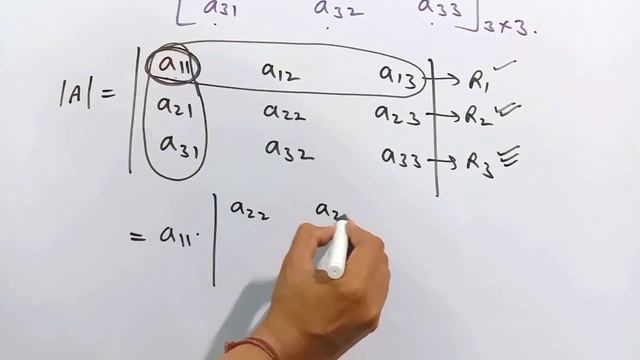 a31 a32 a33 3×3.
|A| = | a11 a12 a13 | → R1 ✓
a21 a22 a23 → R2 ✓
a31 a32 a33 → R3 ✓
= a11. | a22 a2